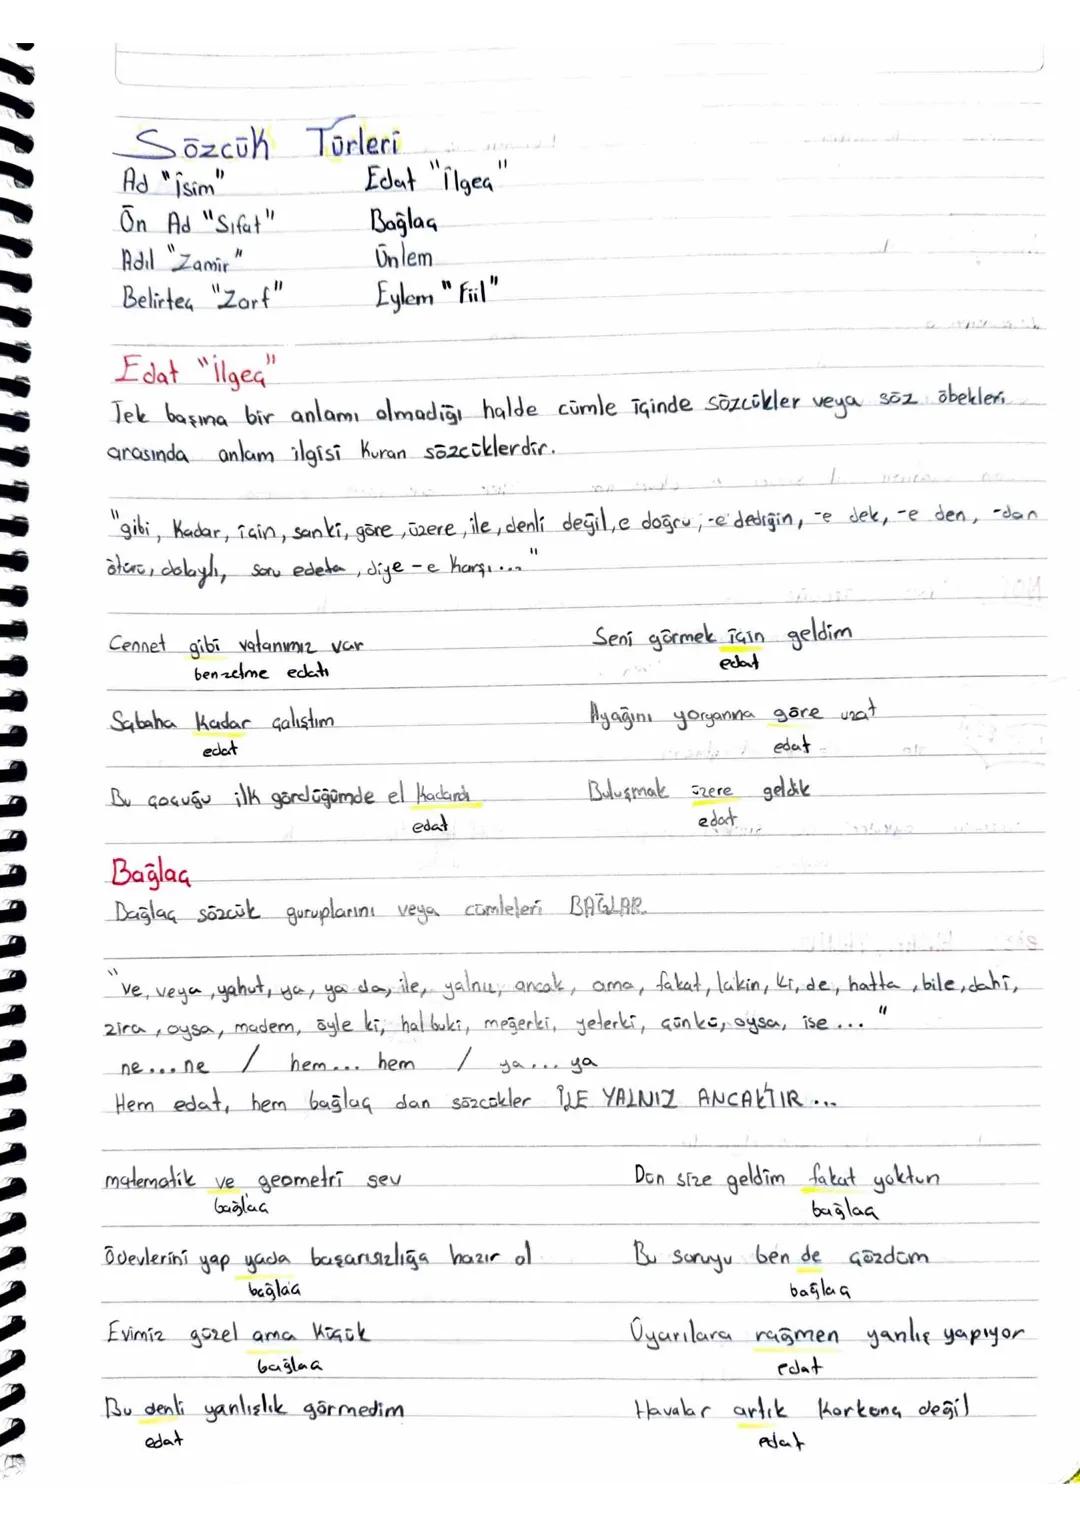 Sözcük Türleri
Ad "isim" Edat "İlgeç"
Ön Ad "Sıfat" Bağlaç
Adıl "Zamir" Ünlem
Belirteç "Zarf" Eylem "Fiil"
Edat "İlgeç"
Tek başına bir anlamı olmadığı halde cümle içinde sözcükler veya söz öbekleri
arasında anlam ilgisi kuran sözcüklerdir.
"gibi, kadar, için, sanki, göre, üzere, ile, denli değil, e doğru, -e dediğin, -e dek, -e den, -dan
ötürü, dolaylı, diye -e karşı..."
Cennet gibi vatanımız var Seni görmek için geldim
benzetme edatı edat
Sabaha kadar çalıştım Ayağını yorganına göre uzat
edat edat
Bu çocuğu ilk gördüğümde el kadardı Buluşmak üzere geldik
edat edat
Bağlaç
Bağlaç sözcük guruplarını veya cümleleri BAĞLAR.
"ve, veya, yahut, ya, ya da, ile, yalnız, ancak, ama, fakat, lakin, ki, de, hatta, bile, dahi,
zira, oysa, madem, öyle ki, halbuki, meğerki, yeterki, çünkü, oysa, ise ..."
ne...ne / hem... hem / ya... ya
Hem edat, hem bağlaç dan sözcükler İLE YALNIZ ANCAKTIR ...
matematik ve geometri sev Dün size geldim fakat yoktun
bağlaç bağlaç
Ödevlerini yap yada başarısızlığa hazır ol Bu soruyu ben de çözdüm
bağlaç bağlaç
Evimiz güzel ama küçük Uyarılara rağmen yanlış yapıyor
bağlaç edat
Bu denli yanlışlık görmedim Havalar artık korkunç değil
edat edat